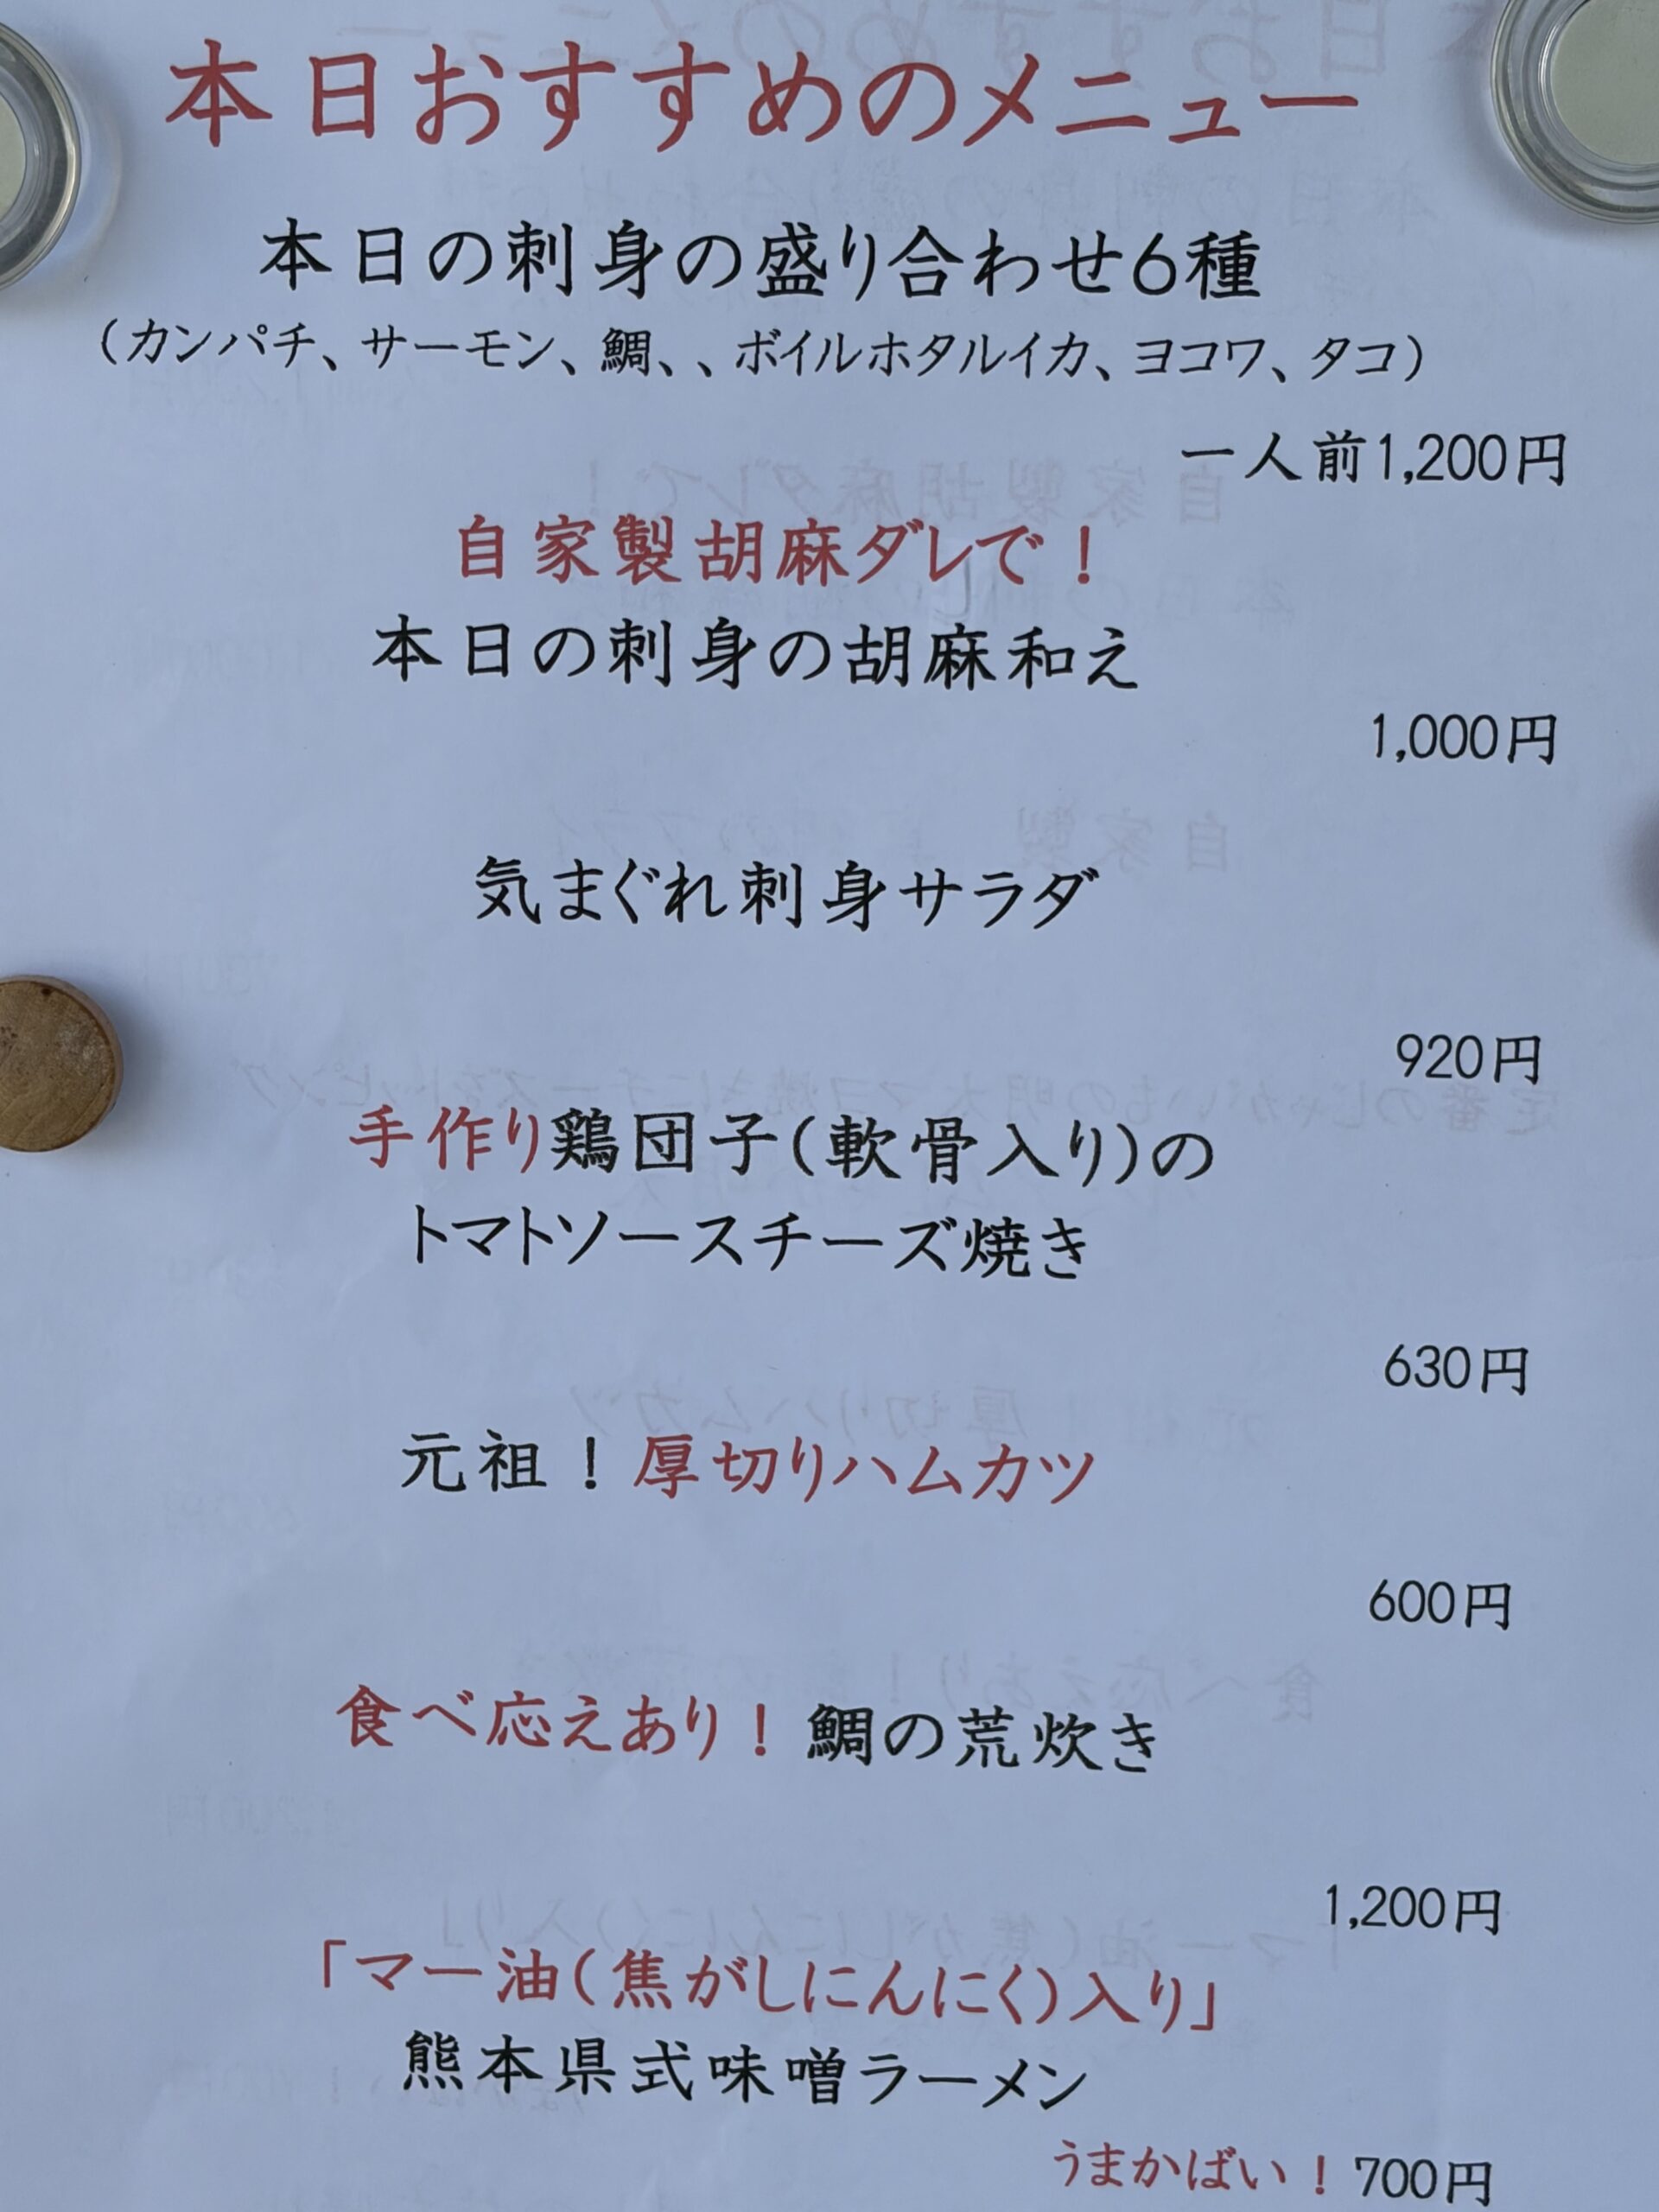 本日おすすめのメニュー
本日の刺身の盛り合わせ6種
（カンパチ、サーモン、鯛、、ボイルホタルイカ、ヨコワ、タコ）
一人前1,200円
自家製胡麻ダレで！
本日の刺身の胡麻和え
1,000円
気まぐれ刺身サラダ
920円
手作り鶏団子（軟骨入り）の
トマトソースチーズ焼き
630円
元祖！厚切りハムカツ
600円
食べ応えあり！鯛の荒炊き
1,200円
「マー油（焦がしにんにく）入り」
熊本県式味噌ラーメン
うまかばい！700円